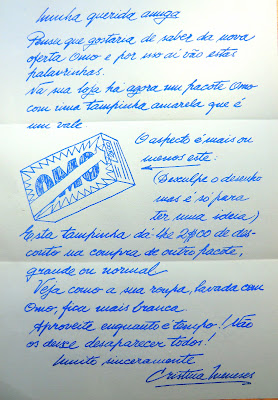 Minha querida amiga
Pensei que gostaria de saber da nova
oferta Omo e por isso aí vão estas
palavrinhas.
Na sua loja há agora um pacote Omo
com uma tampinha amarela que é
um vale.
O aspecto é mais ou
menos este:
OMO
(Desculpe o desenho
mas é só para
ter uma ideia)
Esta tampinha dá-lhe 2$00 de des-
conto na compra de outro pacote,
grande ou normal
Veja como a sua roupa, lavada com
Omo, fica mais branca.
Aproveite enquanto é tempo! Não
os deixe desaparecer todos!
Muito sinceramente
Cristina Meneses